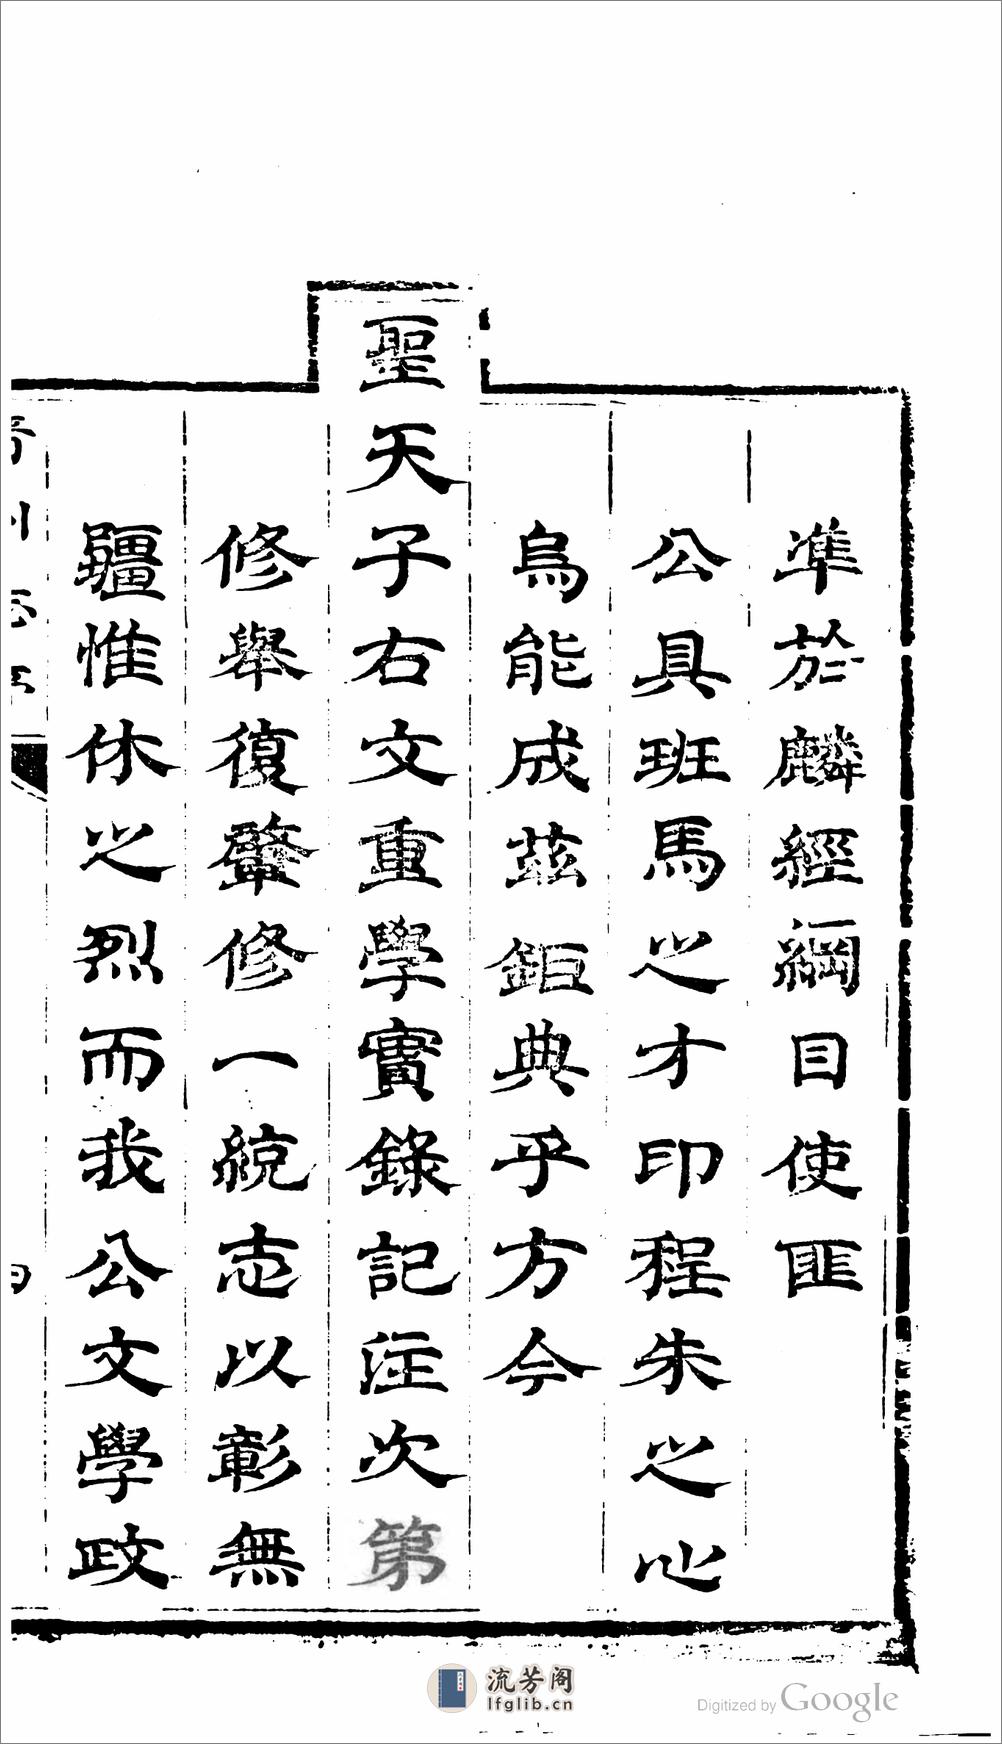 準於麟經綱目使匪
公具班馬之才印程朱之心
烏能成茲鉅典乎方今
聖天子右文重學實錄記注次第
修舉復肇修一統志以彰無
疆惟休之烈而我公文學政
流芳阁
lfglib.cn
Digitized by Google